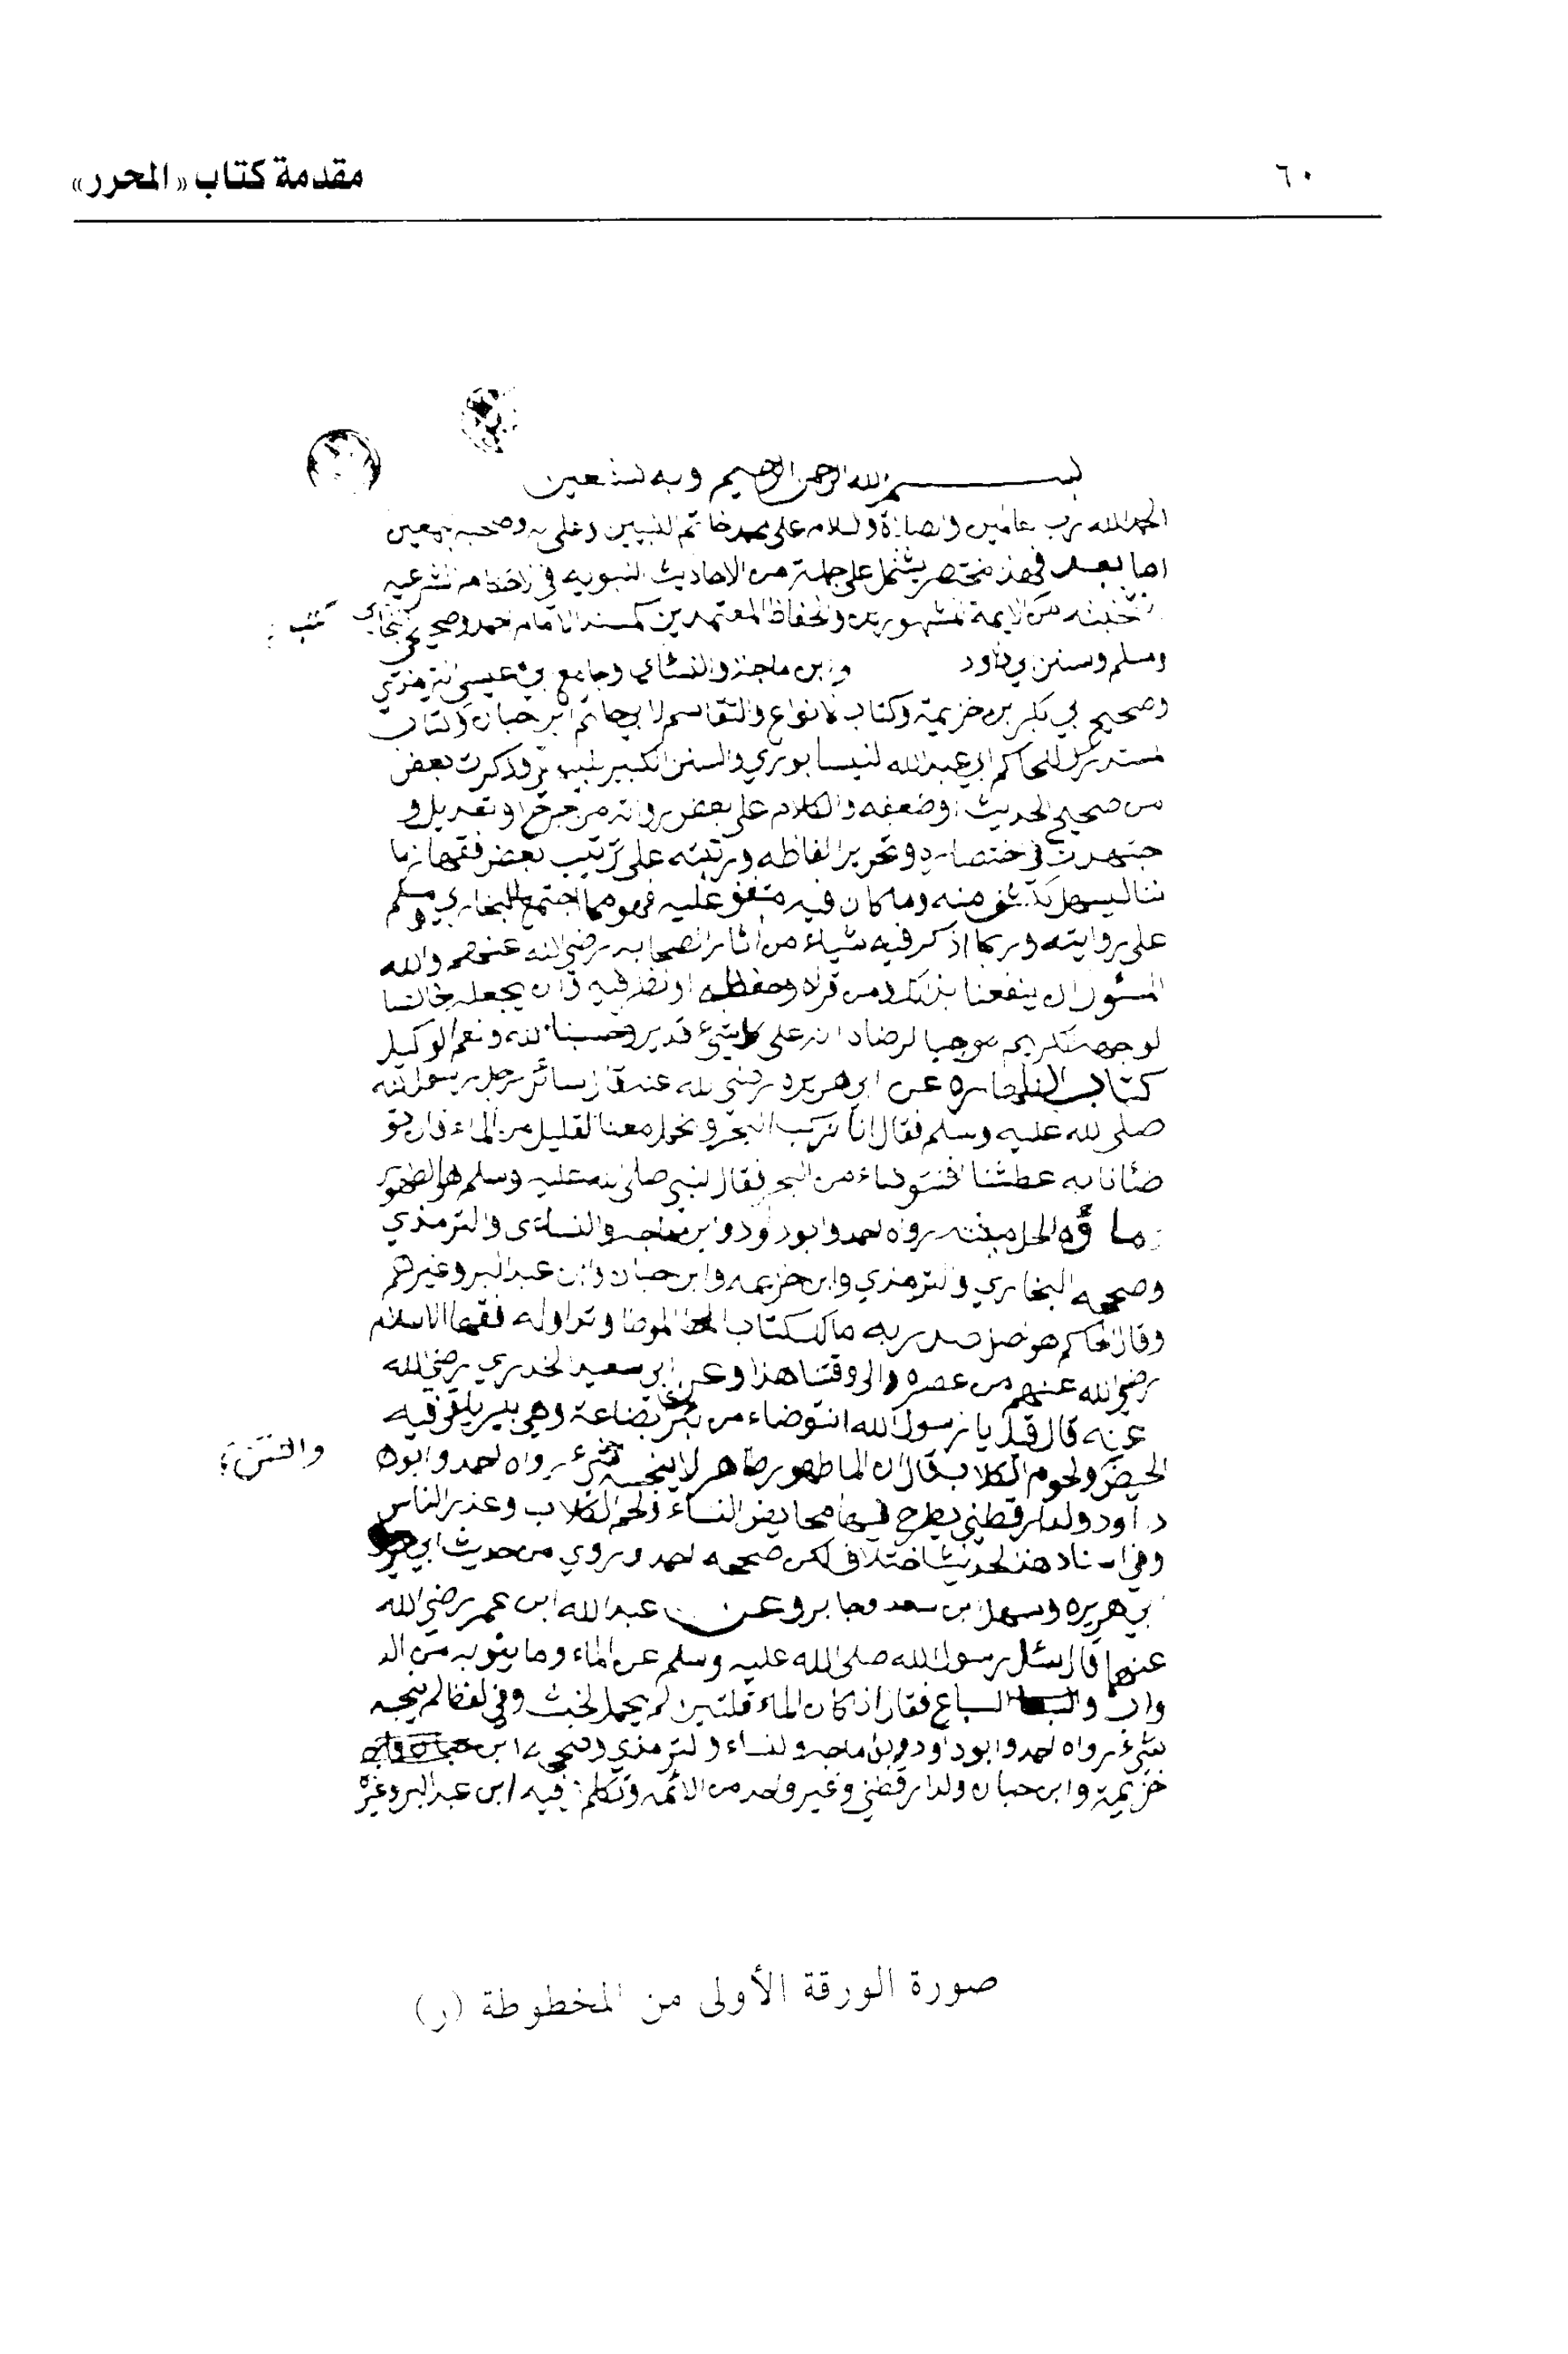 ٦٠
مقدمة كتاب «المحرر»
بسم الله الرحمن الرحيم وبه نستعين
الحمد لله رب عالمين والصلاة والسلام على محمد خاتم النبيين وعلى له وصحبه جمعين
اما بعد فهذا مختصر يشتمل على جملة من الاحاديث النبويه في الاحكام الشرعيه
نتخبته من كتب الايمة المشهورين والحفاظ المعتمدين كمسند الامام احمد وصحيحي البخاري
ومسلم وسنن بي داود وابن ماجة والنسائي وجامع بي عيسى الترمذي
وصحيح بي بكر بن خزيمة وكتاب الانواع والتقاسم لابي حاتم ابن حبان وكتاب
المستدرك للحاكم ابي عبد الله النيسابوري والسنن الكبير للبيهقي وذكرت بعض
من صحيح الحديث اوضعفه والكلام على بعض رواته من جرح او تعديل و
جتهدت في ختصاره وتحرير الفاظه ورتبته على ترتيب بعض فقها زما
ننا ليسهل كشف منه وما كان فيه متفق عليه فهو مما اجتمع البخاري ومسلم
على روايته وربما اذكر فيه شياء من اثار الصحابه رضي الله عنهم والله
المسئول ان ينفعنا بذلك ومن قراه وحفظه اونظر فيه وان يجعله خالصا
لوجهه الكريم موجبا لرضاه انه على كل شيء قدير وحسبنا الله ونعم الوكيل
كتاب الطهاره عن ابي هريره رضي الله عنه قال سائل رجل رسول الله
صلى الله عليه وسلم فقال انا نركب البحر ونحمل معنا القليل من الماء فان تو
ضئانا به عطشنا افنتوضاء من البحر فقال النبي صلى الله عليه وسلم هو الطهور
ماؤه الحل ميتته رواه احمد وابو داود وابن ماجه والنسائى والترمذي
وصححه البخاري والترمذي وابن خزيمه وابن حبان وابن عبد البر وغيرهم
وقال الحاكم هو اصل صدر به مالك كتاب الموطا وتداوله فقهاالاسلام
رضي الله عنهم من عصره الى وقتنا هذا وعن ابي سعيد الخدري رضي الله
عنه قال قيل يا رسول الله انتوضاء من بئر بضاعة وهي بير يلقى فيه
الحيض ولحوم الكلاب والنتن فقال ان الما طهور طاهر لا ينجسه شيء رواه احمد وابوه
د.اود ولدارقطني يطرح فيها محايض النساء ولحم الكلاب وعذر الناس
وفي اسناد هذ الحديث اختلاف لكن صححه احمد وروي من حديث ابي
بي هريره وسهل بن سعد وجابر وعن عبد الله ابن عمر رضي الله
عنهما قال سئل رسول الله صلى الله عليه وسلم عن الماء وما ينوبه من الد
واب والسباع فقال اذا كان الماء قلتين لم يحمل الخبث وفي لفظ لم ينجسه
شيء رواه احمد وابو داود وبن ماجه ولنساء ولترمذي وصححه ابن
خزيمة وابن حبان ولدارقطني وغير واحد من الائمه وتكلم فيه ابن عبد البر وغيره
صورة الورقة الأولى من المخطوطة (ر)